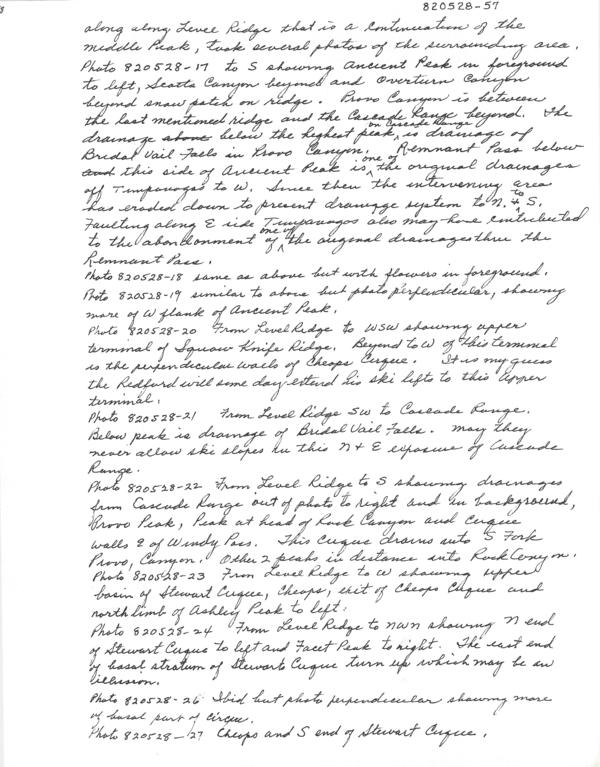 820528-57
along along Level Ridge that is a continuation of the
middle Peak, took several photos of the surrounding area.
Photo 820528-17 to S showing Ancient Peak in foreground
to left, Scotts Canyon beyond and Overturn Canyon
beyond snow patch on ridge. Provo Canyon is between
the last mentioned ridge and the Cascade Range beyond. The
drainage above below the highest peak, on Cascade Range is drainage of
Bridal Vail Falls in Provo Canyon. Remnant Pass below
and this side of Ancient Peak is one of the original drainages
off Timpanogas to W. Since then the intervening area
has eroded down to present drainage system to N. & to S.
Faulting along E side Timpanogos also may have contributed
to the abandonment of one of the original drainages thru the
Remnant Pass.
Photo 820528-18 same as above but with flowers in foreground.
Photo 820528-19 similar to above but photo perpendicular, showing
more of W flank of Ancient Peak.
Photo 820528-20 From Level Ridge to WSW showing upper
terminal of Squaw Knife Ridge. Beyond to W of this terminal
is the perpendicular walls of Cheops Cirque. It is my guess
the Redford will some day extend his ski lifts to this upper
terminal.
Photo 820528-21 From Level Ridge SW to Cascade Range.
Below peak is drainage of Bridal Vail Falls. May they
never allow ski slopes in this N & E exposure of Cascade
Range.
Photo 820528-22 From Level Ridge to S showing drainages
from Cascade Range out of photo to right and in background,
Provo Peak, Peak at head of Rock Canyon and cirque
walls E of Windy Pass. This cirque drains into S Fork
Provo, Canyon. Other 2 peaks in distance into Rock Canyon.
Photo 820528-23 From Level Ridge to W showing upper
basin of Stewart Cirque, Cheops, exit of Cheops Cirque and
north limb of Ashley Peak to left.
Photo 820528-24 From Level Ridge to NWN showing N end
of Stewart Cirque to left and Facet Peak to right. The east end
of basal stratum of Stewart Cirque turn up which may be an
illusion.
Photo 820528-26 Ibid but photo perpendicular showing more
of basal part of cirque.
Photo 820528-27 Cheops and S end of Stewart Cirque.